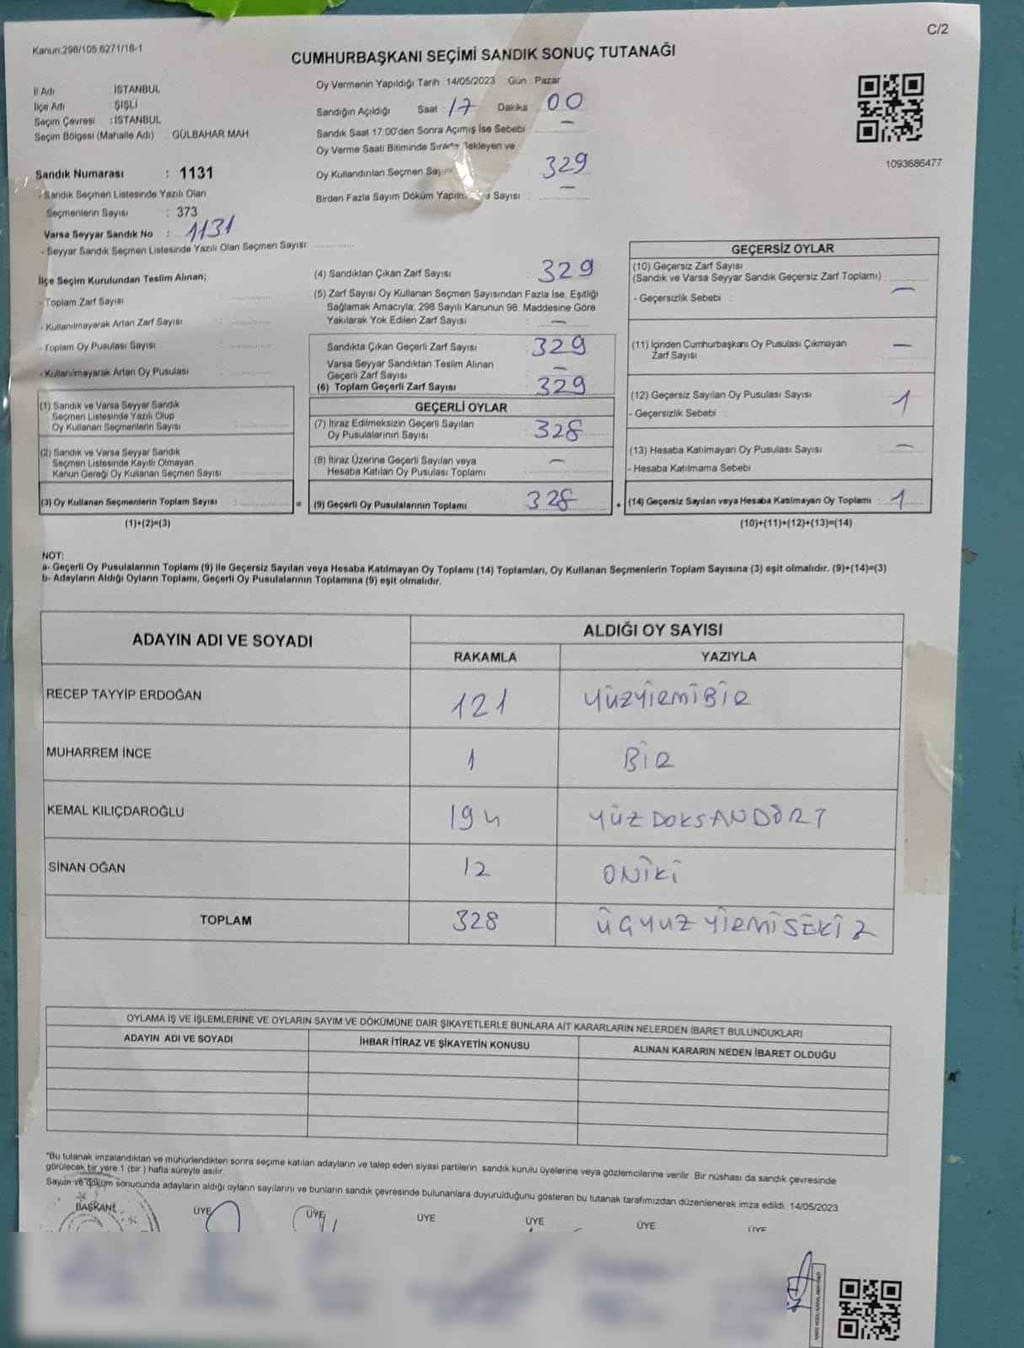 C/2
Kanun:298/105,6271/18-1
CUMHURBAŞKANI SEÇİMİ SANDIK SONUÇ TUTANAĞI
İl Adı İSTANBUL
İlçe Adı ŞİŞLİ
Seçim Çevresi : İSTANBUL
Seçim Bölgesi (Mahalle Adı) : GÜLBAHAR MAH
Sandık Numarası : 1131
- Sandık Seçmen Listesinde Yazılı Olan
Seçmenlerin Sayısı : 373
Varsa Seyyar Sandık No : 1131
- Seyyar Sandık Seçmen Listesinde Yazılı Olan Seçmen Sayısı:
Oy Vermenin Yapıldığı Tarih : 14/05/2023 Gün : Pazar
Sandığın Açıldığı Saat : 17 Dakika 00
Sandık Saat 17.00'den Sonra Açımış İse Sebebi —
Oy Verme Saati Bitiminde Sırada Bekleyen ve
Oy Kullandırılan Seçmen 329
Birden Fazla Sayım Döküm Sayısı : —
1093686477
İlçe Seçim Kurulundan Teslim Alınan;
- Toplam Zarf Sayısı
- Kullanılmayarak Artan Zarf Sayısı
- Toplam Oy Pusulası Sayısı
- Kullanılmayarak Artan Oy Pusulası
(1) Sandık ve Varsa Seyyar Sandık
Seçmen Listesinde Yazılı Olup
Oy Kullanan Seçmenlerin Sayısı
(2) Sandık ve Varsa Seyyar Sandık
Seçmen Listesinde Kayıtlı Olmayan
Kanun Gereği Oy Kullanan Seçmen Sayısı
(3) Oy Kullanan Seçmenlerin Toplam Sayısı :
(1)+(2)=(3)
(4) Sandıktan Çıkan Zarf Sayısı 329
(5) Zarf Sayısı Oy Kullanan Seçmen Sayısından Fazla İse, Eşitliği
Sağlamak Amacıyla; 298 Sayılı Kanunun 98. Maddesine Göre
Yakılarak Yok Edilen Zarf Sayısı —
Sandıkta Çıkan Geçerli Zarf Sayısı 329
Varsa Seyyar Sandıktan Teslim Alınan
Geçerli Zarf Sayısı —
(6) Toplam Geçerli Zarf Sayısı 329
GEÇERLİ OYLAR
(7) İtiraz Edilmeksizin Geçerli Sayılan
Oy Pusulalarının Sayısı 328
(8) İtiraz Üzerine Geçerli Sayılan veya
Hesaba Katılan Oy Pusulası Toplamı —
= (9) Geçerli Oy Pusulalarının Toplamı 328 +
GEÇERSİZ OYLAR
(10) Geçersiz Zarf Sayısı
(Sandık ve Varsa Seyyar Sandık Geçersiz Zarf Toplamı)
- Geçersizlik Sebebi : —
(11) İçinden Cumhurbaşkanı Oy Pusulası Çıkmayan
Zarf Sayısı —
(12) Geçersiz Sayılan Oy Pusulası Sayısı 1
- Geçersizlik Sebebi :
(13) Hesaba Katılmayan Oy Pusulası Sayısı —
- Hesaba Katılmama Sebebi
(14) Geçersiz Sayılan veya Hesaba Katılmayan Oy Toplamı : 1
(10)+(11)+(12)+(13)=(14)
NOT:
a- Geçerli Oy Pusulalarının Toplamı (9) ile Geçersiz Sayılan veya Hesaba Katılmayan Oy Toplamı (14) Toplamları, Oy Kullanan Seçmenlerin Toplam Sayısına (3) eşit olmalıdır. (9)+(14)=(3)
b- Adayların Aldığı Oyların Toplamı, Geçerli Oy Pusulalarının Toplamına (9) eşit olmalıdır.
ADAYIN ADI VE SOYADI ALDIĞI OY SAYISI
RAKAMLA YAZIYLA
RECEP TAYYİP ERDOĞAN 121 YÜZYİRMİBİR
MUHARREM İNCE 1 BİR
KEMAL KILIÇDAROĞLU 194 YÜZDOKSANDÖRT
SİNAN OĞAN 12 ONİKİ
TOPLAM 328 ÜÇYUZ YİRMİSEKİZ
OYLAMA İŞ VE İŞLEMLERİNE VE OYLARIN SAYIM VE DÖKÜMÜNE DAİR ŞİKAYETLERLE BUNLARA AİT KARARLARIN NELERDEN İBARET BULUNDUKLARI
ADAYIN ADI VE SOYADI İHBAR İTİRAZ VE ŞİKAYETİN KONUSU ALINAN KARARIN NEDEN İBARET OLDUĞU
"Bu tutanak imzalandıktan ve mühürlendikten sonra seçime katılan adayların ve talep eden siyasi partilerin sandık kurulu üyelerine veya gözlemcilerine verilir. Bir nüshası da sandık çevresinde
görülecek bir yere 1 (bir) hafta süreyle asılır.
Sayım ve döküm sonucunda adayların aldığı oyların sayılarını ve bunların sandık çevresinde bulunanlara duyurulduğunu gösteren bu tutanak tarafımızdan düzenlenerek imza edildi. 14/05/2023
BAŞKAN ÜYE ÜYE ÜYE ÜYE ÜYE ÜYE